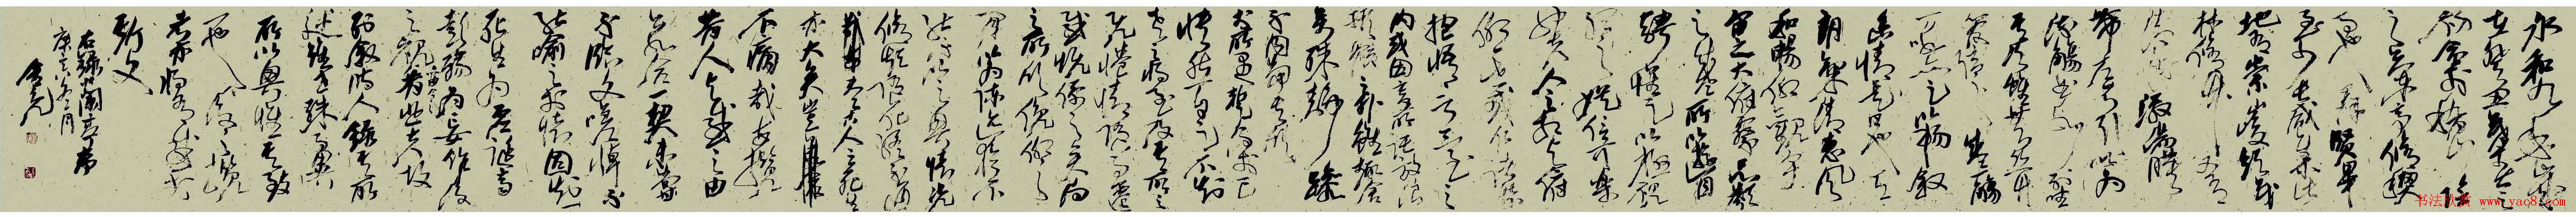 永和九年歲
在癸丑暮春之
初會於會稽山陰
之蘭亭修禊
事也群賢畢
至少長咸集此
地有崇山峻領茂
林修竹又有
清流激湍映
帶左右引以為
流觴曲水列坐
其次雖無絲竹
管弦之盛一觴
一詠亦足以暢敘
幽情是日也天
朗氣清惠風
和暢仰觀宇
宙之大俯察品類
之盛所以遊目
騁懷足以極視
聽之娛信可樂
也夫人之相與俯
仰一世或取諸懷
抱悟言一室之
內或因寄所託放浪
形骸之外雖趣舍
萬殊靜躁
不同當其欣
於所遇暫得於己
快然自足不知
老之將至及其所之
既惓情隨事遷
感慨係之矣向
之所欣俛仰之
間以為陳迹猶不
能不以之興懷況
修短隨化終期
於盡古人云死生
亦大矣豈
不痛哉每攬
昔人興感之由
若合一契未嘗
不臨文嗟悼不
能喻之於懷固知一
死生為虛誕齊
彭殤為妄作後
之視今悲夫故
列敘時人錄其所
述雖世殊事異
所以興懷其致
一也後之攬
者亦將有感於
斯文
右録蘭亭序
书法欣赏 www.yao8.com